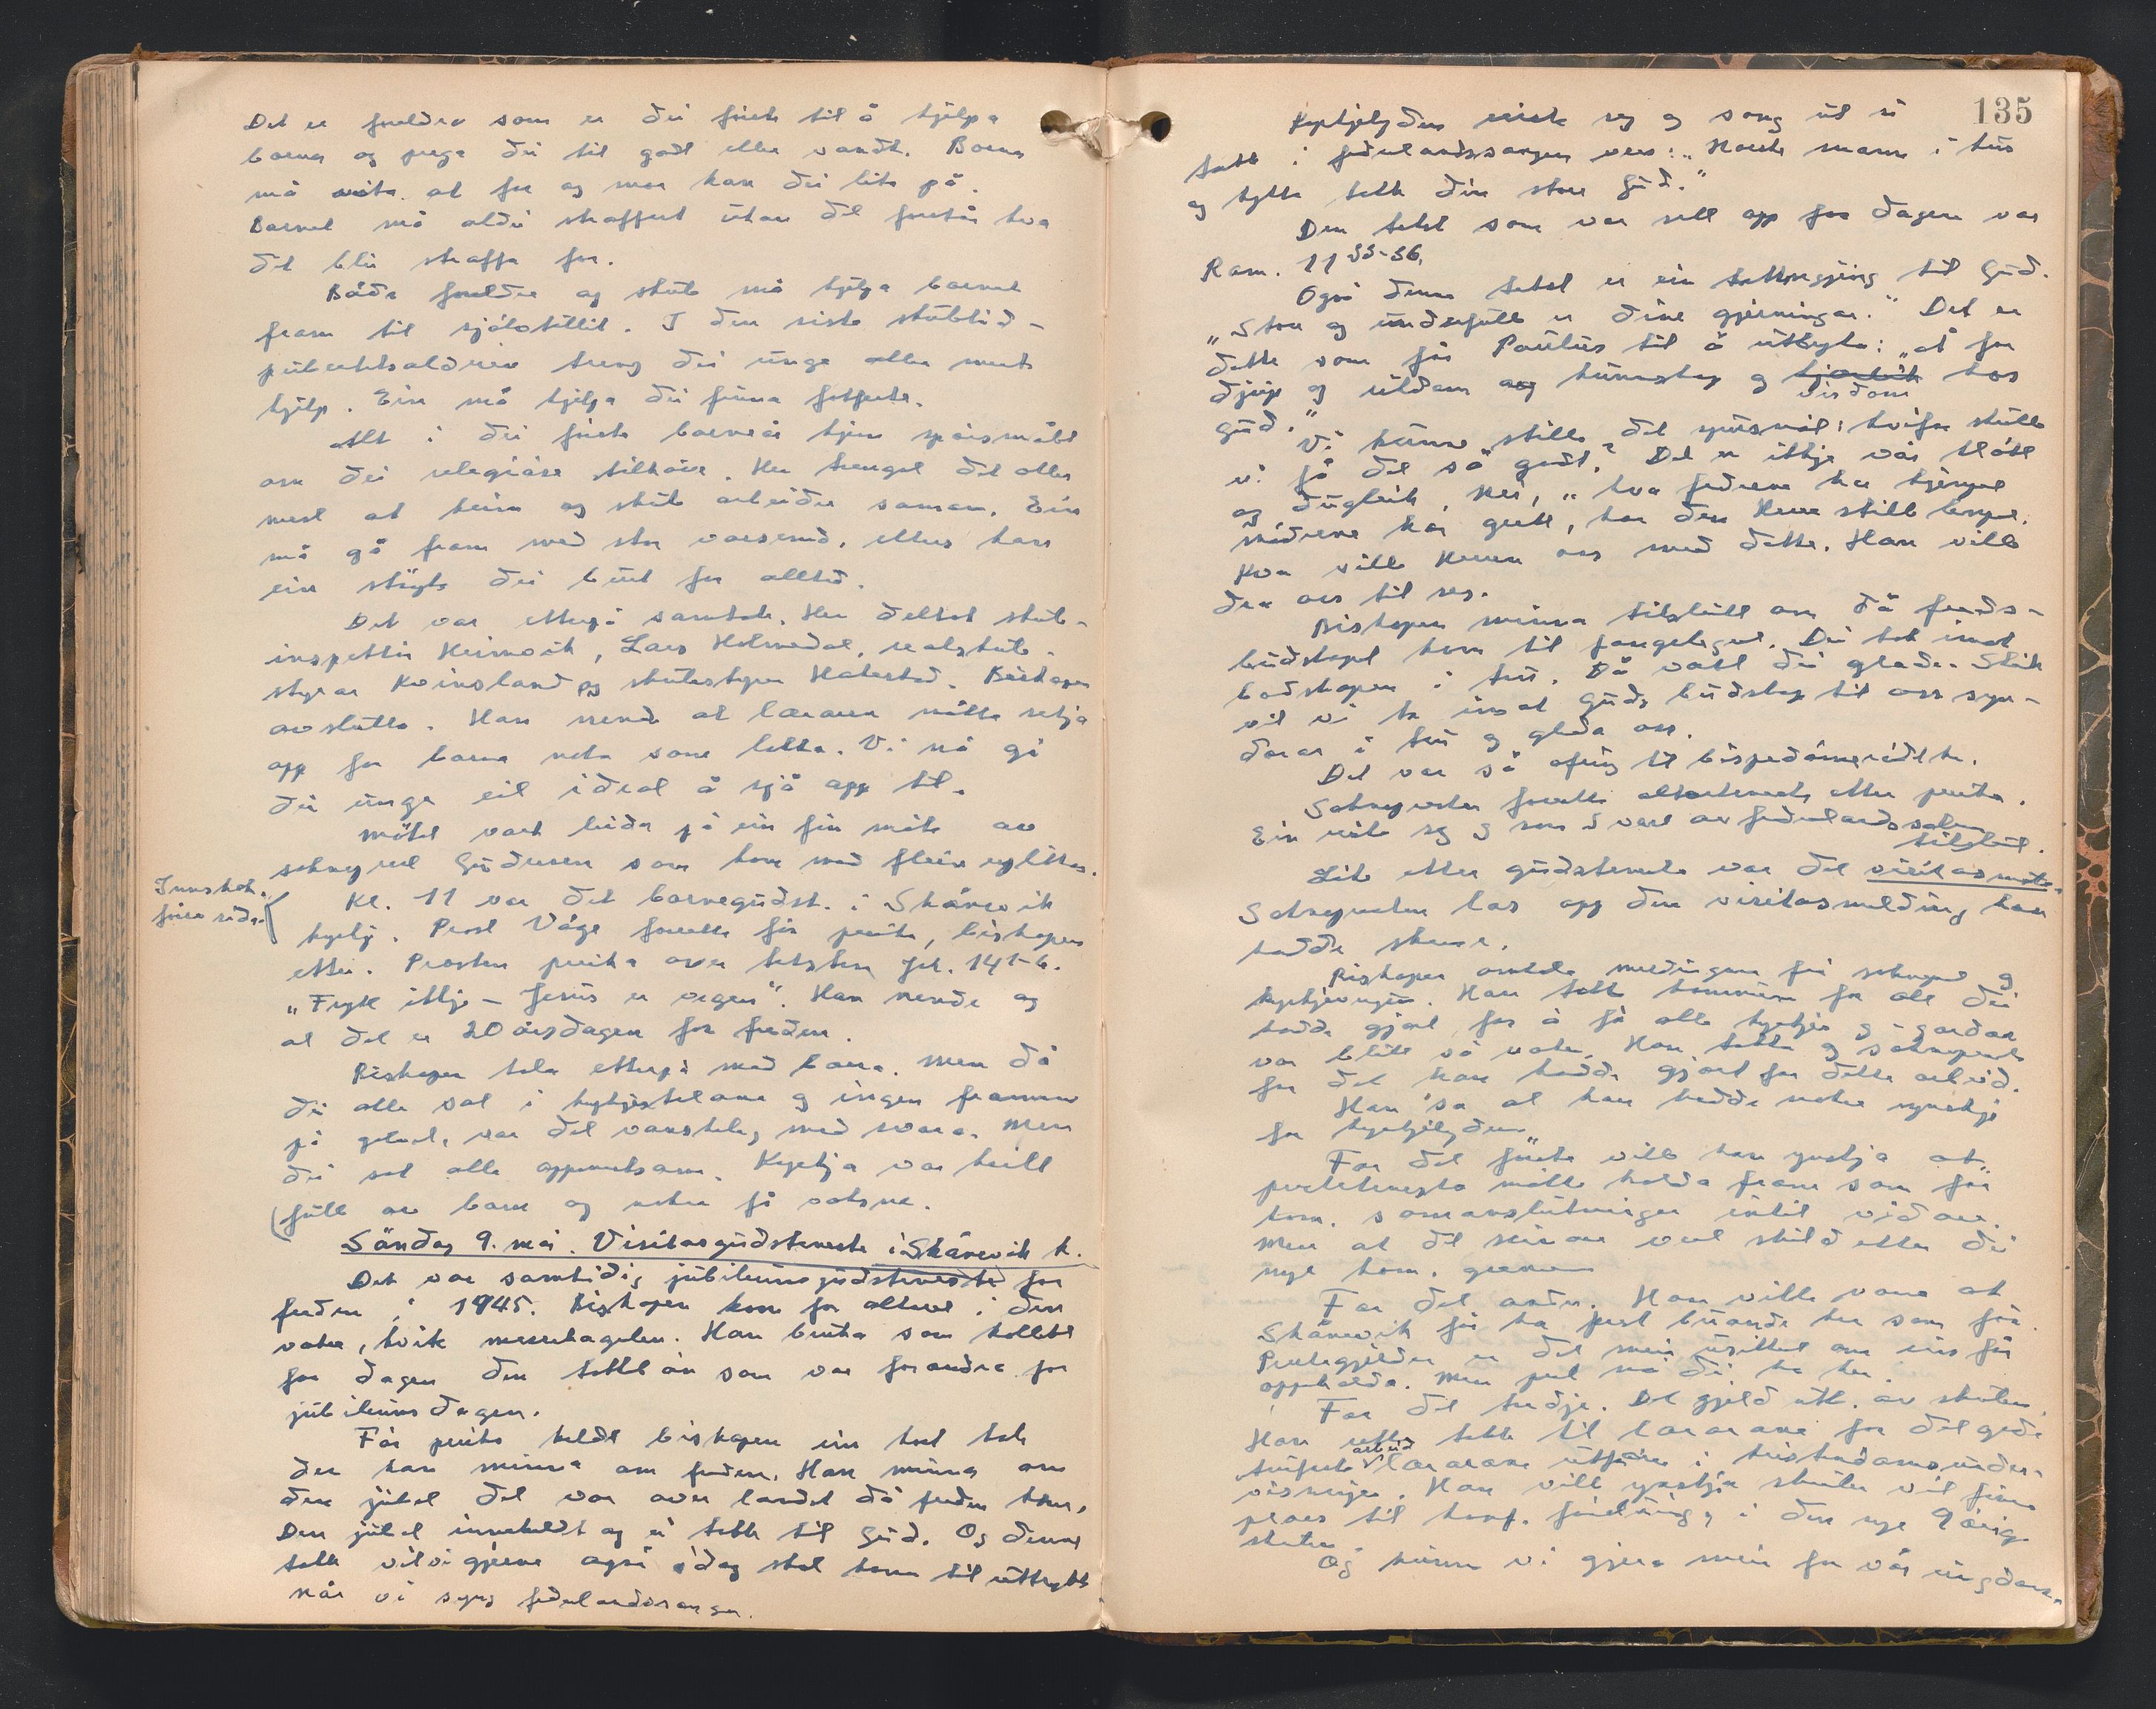 Det er foreldra som er dei første til å hjelpa
borna og prega dei til godt eller vondt. Borna
må vita at far og mor kan dei lita på.
Barnet må aldri straffast utan det forstår kva
det blir straffa for.
Både foreldre og skule må hjelpa barnet
fram til sjølvstillit. I den siste skuletid -
pubertetsalderen treng dei unge aller mest
hjelp. Ein må hjelpa dei finna fotfeste.
Alt i dei første barneår kjem spørsmålet
om dei religiøse tilhøve. Her trengst det aller
mest at heim og skule arbeider saman. Ein
må gå fram med stor varsemd, elles kan
ein støyta dei bort for alltid.
Det var etterpå samtale. Her deltok skule-
inspektør Heimvik, Lars Holmedal, realskule-
styrar Kvinsland og skulestyrar Halestad. Biskopen
avslutta. Han nemnde at lærarar måtte setja
opp for borna noko som lokka. Vi må gi
dei unge eit ideal å sjå opp til.
Møtet vart leida på ein fin måte av
sokneprest Gudmund som kom med fleire replikkar.
Innskot
frå sida
Kl. 11 var det barnegudst. i Skånevik
kyrkje. Prost Våge forretta før preika, biskopen
etter. Prosten preika over teksten Joh. 14 1-6.
"Frykt ikkje - Jesus er vegen". Han nemnde og
at det er 20 årsdagen for freden.
Biskopen tala etterpå med borna. Men då
dei alle sat i kyrkjestolane og ingen framme
på golvet, var det vanskeleg med svara. Men
dei sat alle oppmerksame. Kyrkja var heilt
full av born og nokre få vaksne.
Söndag 9. mai. Visitasgudsteneste i Skånevik k.
Det var samtidig jubileumsgudsteneste for
freden i 1945. Biskopen kom for alteret i den
vakre, kvite messehagelen. Han bruka som kollekt
for dagen den takkbøn som var forordna for
jubileumsdagen.
Før preika heldt biskopen ein kort tale
der han minna om freden. Han minna om
den jubel det var over landet då freden kom.
Den jubel inneheldt og ei takk til Gud. Og denne
takk vil vi gjerne også i dag skal koma til uttrykk
når vi syng fedrelandssongen.
135
Kyrkjelyden reiste seg og song ut si
takk i fedrelandssongens vers: "Norske mann i hus
og hytte takk din store Gud."
Den tekst som var sett opp for dagen var
Rom. 11 33-36.
Også denne tekst er ein takksegjing til Gud.
"Store og underfulle er dine gjerningar." Det er
dette som får Paulus til å utbryta: "Å for
djup og rikdom og kunnskap og visdom hos
Gud."
Vi kunne stilla det spørsmål: kvifor skulle
vi få det så godt? Det er ikkje vår kløkt
og dugleik. Nei, "kva fedrene har kjempet
mödrene har grett, har den Herre stille lempet.
Kva ville Herren oss med dette. Han ville
dra oss til seg.
Biskopen minna tilslutt om då freds-
budskapet kom til fangeleiret. Dei tok imot
bodskapen i tru. Då vart dei glade. Slik
vil vi ta imot Guds budskap til oss syn-
darar i tru og gleda oss.
Det var så ofring til bispedømerådet.
Soknepresten forretta altarteneste etter preika.
Ein reiste seg og song 3 vers av fedrelandssalmen
tilslutt.
Litt etter gudstenesta var det visitasmøte.
Soknepresten las opp den visitasmelding han
hadde skreve.
Biskopen omtala meldingane frå sokneprest og
kyrkjeverjen. Han takka kommunen for alt dei
hadde gjort for å få alle kyrkjer og -gardar
var blitt så vakre. Han takka og soknepresten
for det han hadde gjort for dette arbeid.
Han sa at han hadde nokre ynskje
for kyrkjelyden.
For det første ville han ynskja at
prestetenesta måtte halda fram som før
kom. samanslutningen inntil vidare.
Men at det seinare vert skild etter dei
nye kom. grenser
For det andre. Han ville vona at
Skånevik får ha prest buande her som før.
Prestegjeldet er det meir usikkert om ein får
oppehalda. Men prest må dei ha her.
For det tredje. Det gjeld utb. av skulen.
Han ville takka til lærarane for det gode
trufaste arbeid lærarane utfører i kristendomsunder-
visninga. Han ville ynskja skulen vil finna
plass til konf. førebuing i den nye 9 årige
skulen
Og kunne vi gjera meir for vår ungdom.